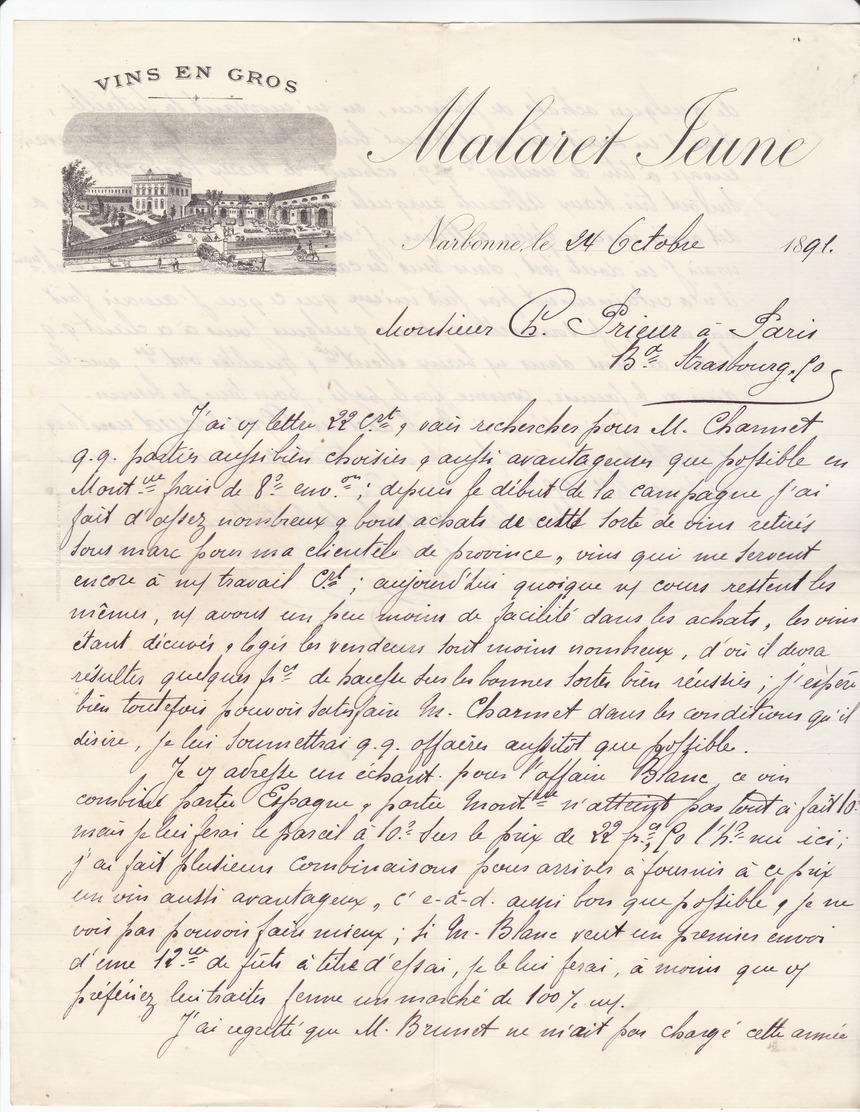 VINS EN GROS
Malaret Jeune
Narbonne, le 24 Octobre 1891.
Monsieur Ch. Prieur à Paris
Bd Strasbourg, 90
J'ai v/ lettre 22 Crt & vais rechercher pour M. Charmet
q.q. parties aussi bien choisies & aussi avantageuses que possible en
Montgne frais de 8° env.on; depuis le début de la campagne j'ai
fait d'assez nombreux & bons achats de cette sorte de vins retirés
sous marc pour ma clientèle de province, vins qui me servent
encore à m/ travail Crt; aujourd'hui quoique n/ cours restent les
mêmes, n/ avons un peu moins de facilité dans les achats, les vins
étant décuvés & logés les vendeurs sont moins nombreux, d'où il devra
résulter quelques frcs de hausse sur les bonnes sortes bien réussies; j'espère
bien toutefois pouvoir satisfaire M. Charmet dans les conditions qu'il
désire, je lui soumettrai q.q. affaires aussitôt que possible.
Je v/ adresse un échant. pour l'affaire Blanc, ce vin
combiné partie Espagne & partie Montgne n'atteint pas tout à fait 10°
mais je lui ferai le pareil à 10° sur le prix de 22 frcs 50 l'ho nu ici;
j'ai fait plusieurs combinaisons pour arriver à fournir à ce prix
un vin aussi avantageux, c'e-à-d. aussi bon que possible & je ne
vois pas pouvoir faire mieux; si M. Blanc veut un premier envoi
d'une 12ne de fûts à titre d'essai, je le lui ferai, à moins que v/
préfériez lui traiter ferme un marché de 100
J'ai regretté que M. Brunet ne m'ait pas chargé cette année